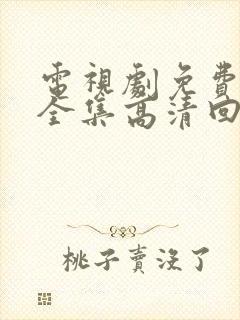 電視劇免費
全集高清回
桃子賣沒了